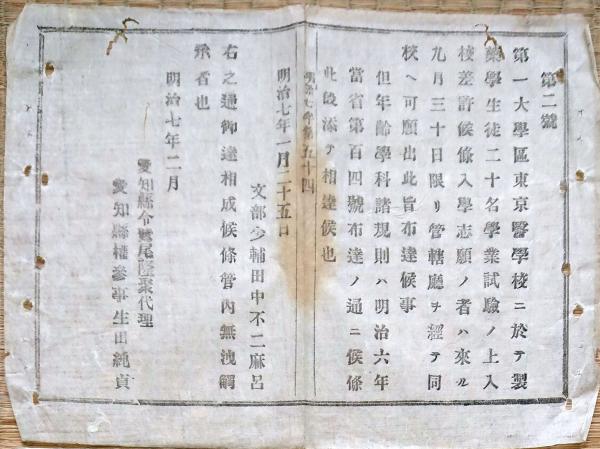 第二號
第一大學區東京醫學校ニ於テ製
藥學生徒二十名學業試驗ノ上入
校差許候條入學志願ノ者ハ來ル
九月三十日限リ管轄廳ヲ經テ同
校ヘ可願出此旨布達候事
但年齡學科諸規則ハ明治六年
當省第百四號布達ノ通ニ候條
此段添テ相達候也
五十四
明治七年一月二十五日
文部少輔田中不二麻呂
右之通御達相成候條管內無洩觸
示者也
明治七年二月
愛知縣令鷲尾隆聚代理
愛知縣權參事生田純貞